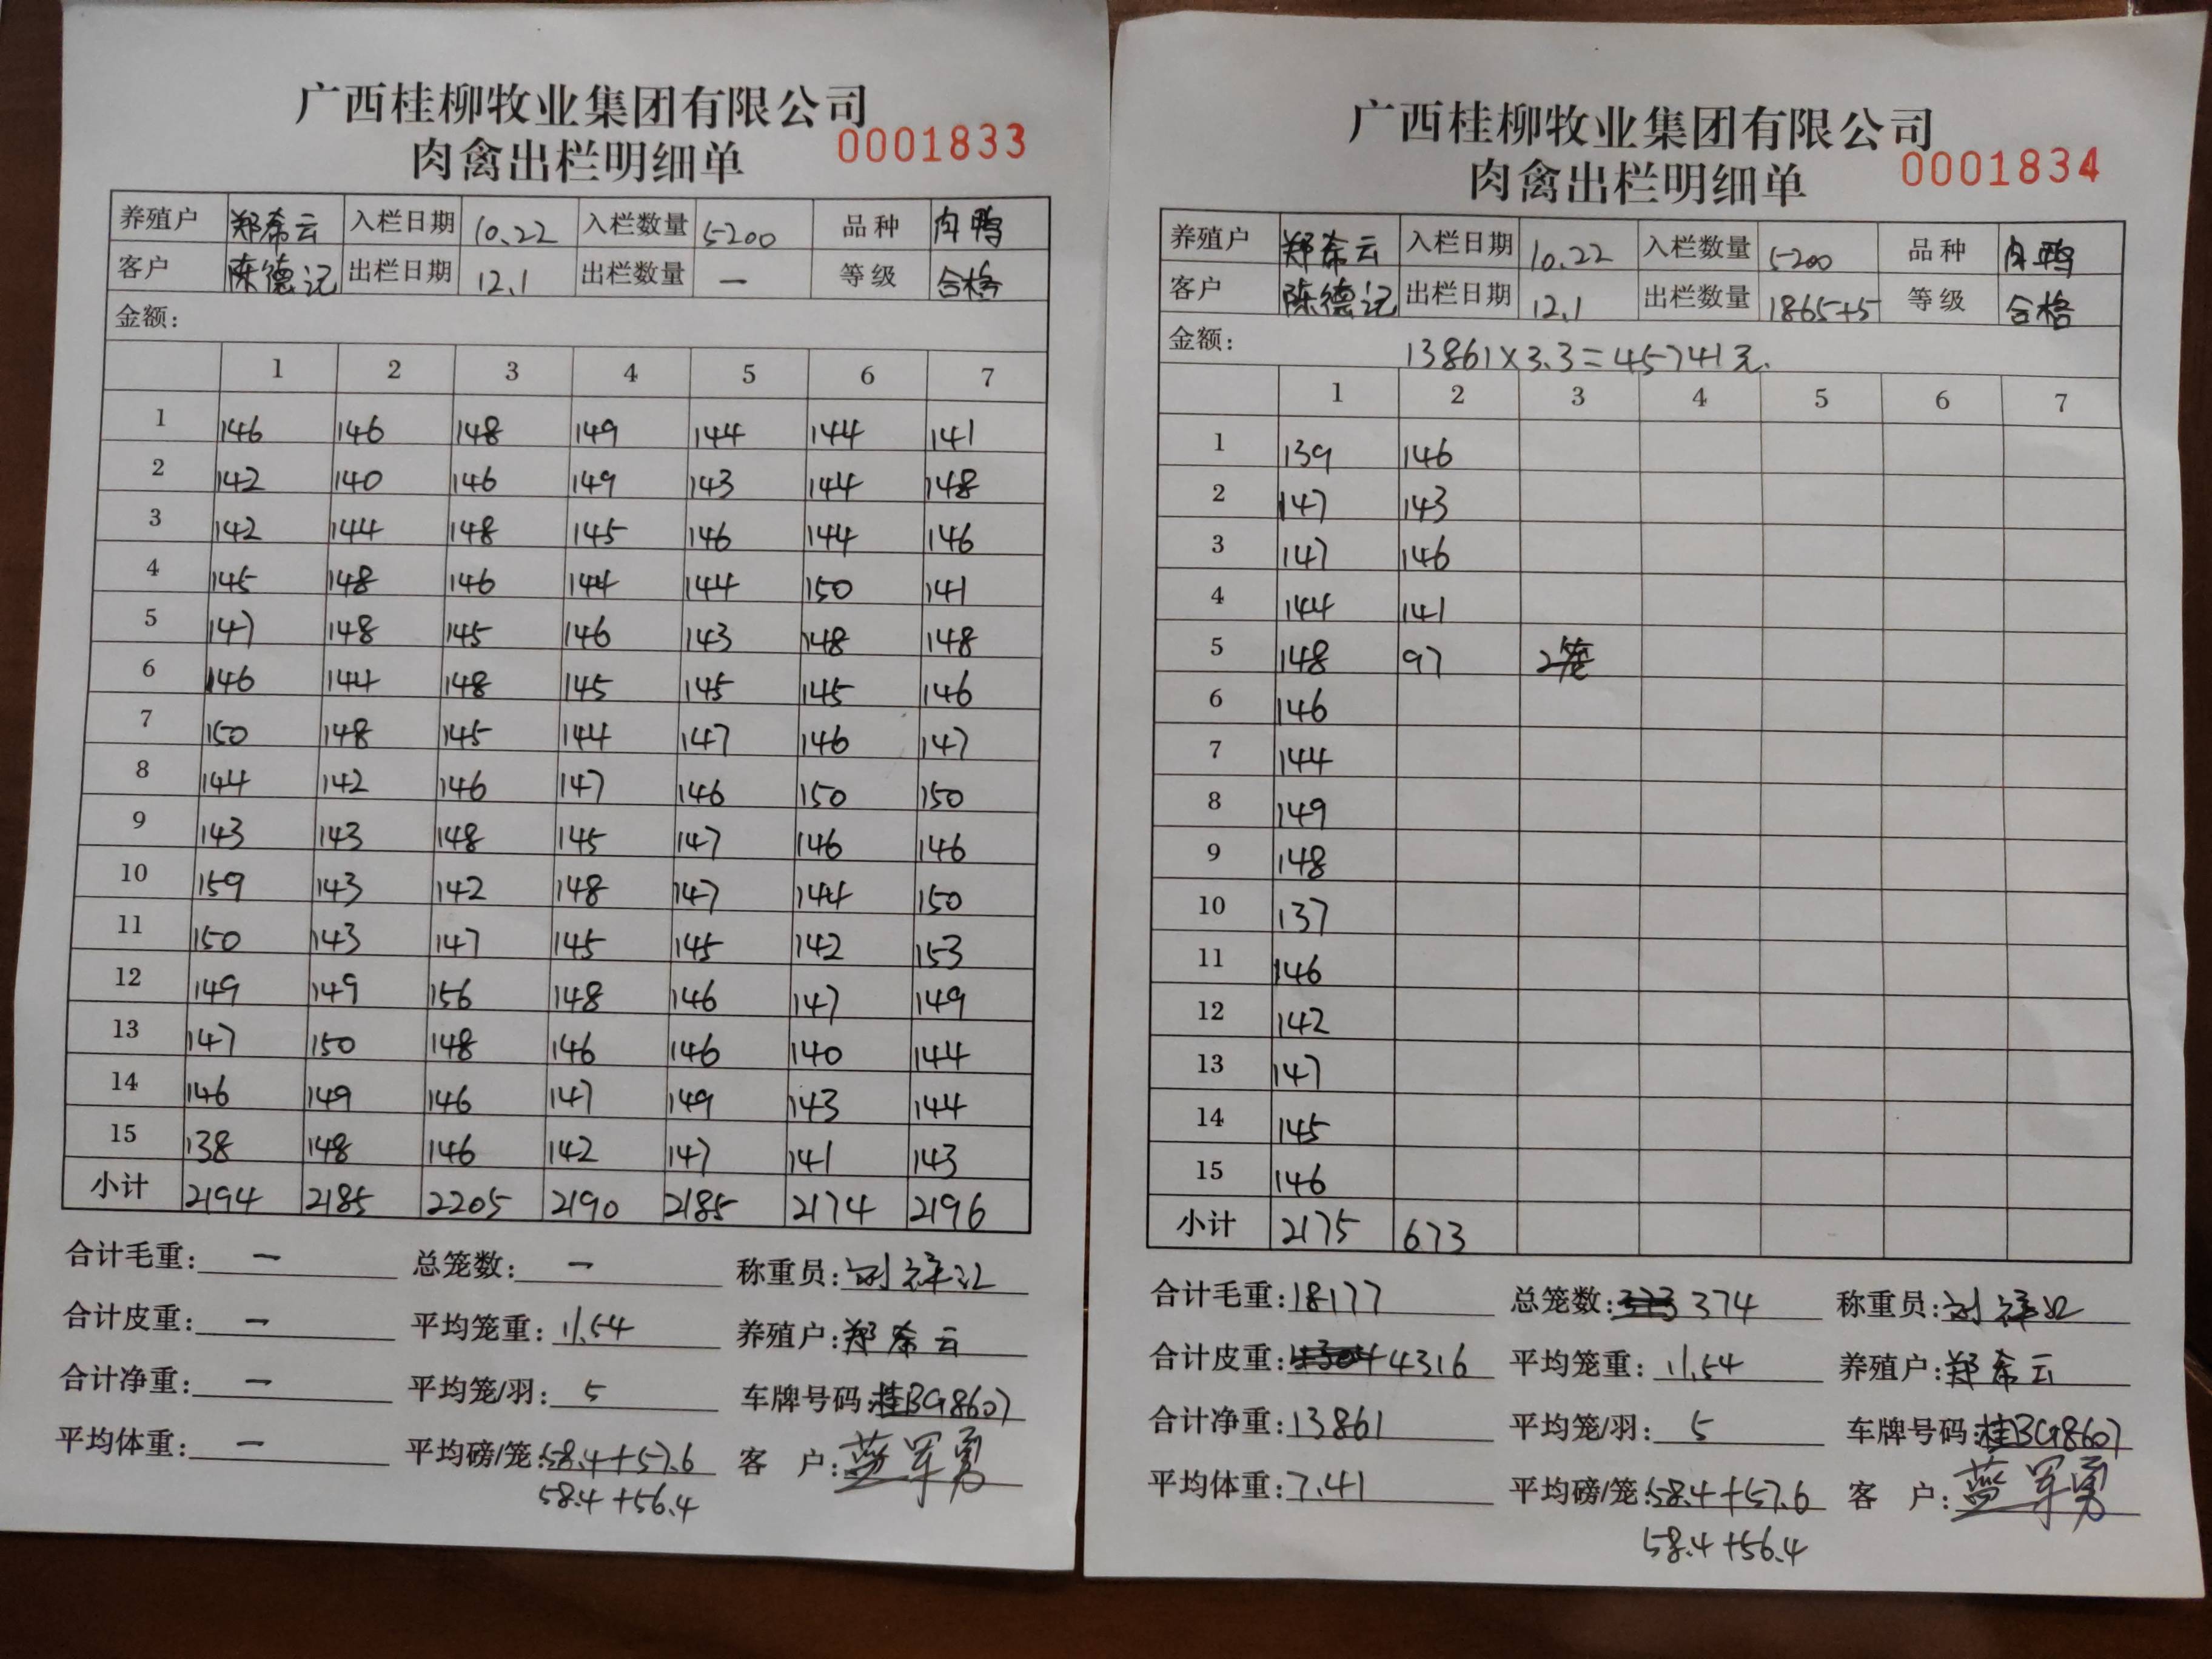 广西桂柳牧业集团有限公司
肉禽出栏明细单 0001833
养殖户 郑希云 入栏日期 10.22 入栏数量 5200 品种 白鸭
客户 陈德记 出栏日期 12.1 出栏数量 — 等级 合格
金额:
1 2 3 4 5 6 7
1 146 146 148 149 144 144 141
2 142 140 146 149 143 144 148
3 142 144 148 145 146 144 146
4 145 148 146 144 144 150 141
5 147 148 145 146 143 148 148
6 146 144 148 145 145 145 146
7 150 148 145 144 147 146 147
8 144 142 146 147 146 150 150
9 143 143 148 145 147 146 146
10 159 143 142 148 147 144 150
11 150 143 147 145 145 142 153
12 149 149 156 148 146 147 149
13 147 150 148 146 146 140 144
14 146 149 146 147 149 143 144
15 138 148 146 142 147 141 143
小计 2194 2185 2205 2190 2185 2174 2196
合计毛重: — 总笼数: — 称重员:
合计皮重: — 平均笼重: 11.54 养殖户: 郑希云
合计净重: — 平均笼/羽: 5 车牌号码: 桂BG8607
平均体重: — 平均磅/笼: 58.4+57.6 客 户: 蓝军勇
58.4+56.4
广西桂柳牧业集团有限公司
肉禽出栏明细单 0001834
养殖户 郑希云 入栏日期 10.22 入栏数量 5200 品种 白鸭
客户 陈德记 出栏日期 12.1 出栏数量 1865+5 等级 合格
金额: 13861×3.3=45741元.
1 2 3 4 5 6 7
1 139 146
2 147 143
3 147 146
4 144 141
5 148 97 2笼
6 146
7 144
8 149
9 148
10 137
11 146
12 142
13 147
14 145
15 146
小计 2175 673
合计毛重: 18177 总笼数: 374 称重员:
合计皮重: 4316 平均笼重: 11.54 养殖户: 郑希云
合计净重: 13861 平均笼/羽: 5 车牌号码: 桂BG8607
平均体重: 7.41 平均磅/笼: 58.4+57.6 客 户: 蓝军勇
58.4+56.4